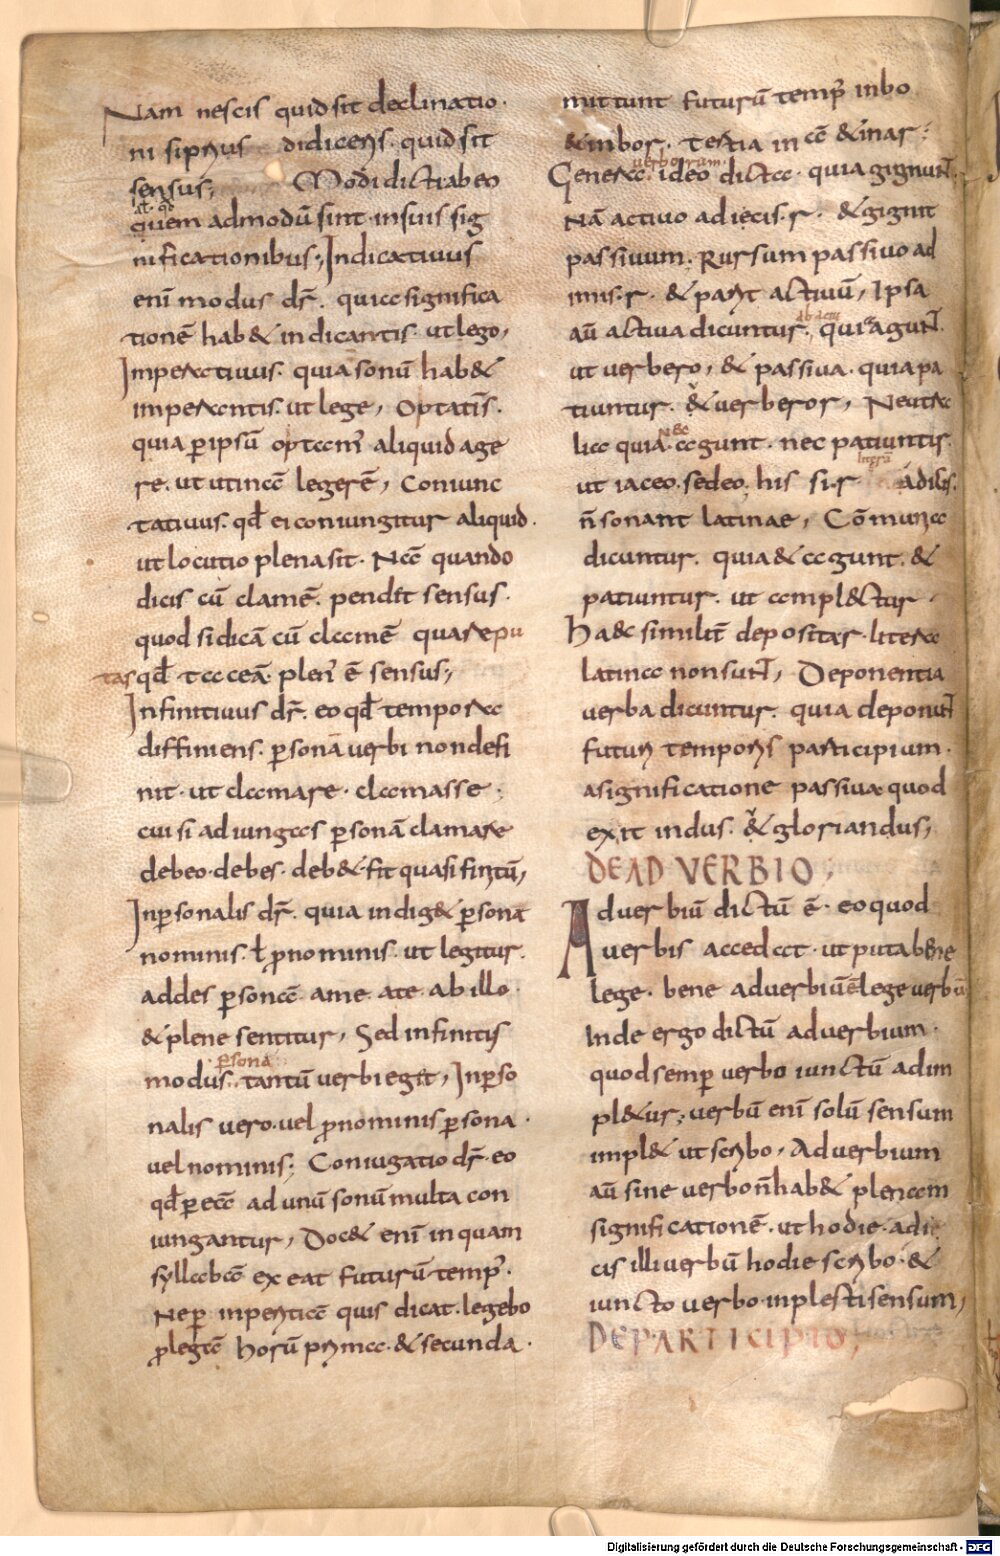 Nam nescis quid sit declinatio·
ni si prius didiceris· quid sit
sensus; Modi dicti ab eo
at· qd
quem admodū sint in suis sig
nificationibus; Indicativus
enī modus dr̄· quia significa
tionē hab& indicantis· ut lego,
Imperativus· quia sonū hab&
imperantis· ut lege, Optatiȳs·
quia ꝑ ipsū optam̄ aliquid age
re· ut utinā legerē, Coniunc
tativus· qđ ei coniungitur aliquid·
ut locutio plena sit· Nā quando
dicis cū clamē· pendit sensus·
quod si dicā cū clamē quare pu
tas qđ taceā· plen̄ ē sensus;
Infinitivus dr̄· eo qđ tempora
diffiniens· ꝑsonā verbi non defi
nit· ut clamare· clamasse·
cui si adiungas ꝑsonā clamare
debeo· debes· deb& fit quasi finitū,
Inꝑsonalis dr̄· quia indig& ꝑsona
nominis· ł ꝓnominis· ut legitur·
addes ꝑsonā a me· a te· ab illo·
& plene sentitur, Sed infinitiȳ
ꝑsona
modus· tantū verbi egit, Inꝑso
nalis vero· vel ꝓnominis ꝑsona·
vel nominis; Coniugatio dr̄· eo
qđ ꝑ eā ad unū sonū multa con
iungantur, Doc& enī in quam
syllabā exeat futurū temp̄·
Ne ꝑ inperitiā quis dicat· legebo
ꝓ legā horū prima· & secunda·
mittunt futurū temp̄ in bo
& in bor· Tertia in ā & in ar:
verborum
Genera· ideo dicta· quia gignuN̄T·
Nā activo adiecis· r· & gignit
passivum· Rursum passivo ad
imis· r· & parit activū, Ipsa
ab actu
aū activa dicuntur· quia aguN̄T·
ut verbero, & passiva· quia pa
tiuntur· & verberor, Neutra
Nec
lia quia· agunt· nec patiuntis·
ut iaceo· sedeo· his si· r adiles·
n̄ sonant latinae, Cōmunia
dicuntur· quia & agunt· &
patiuntur· ut ampl&ctur·
Haec similit̄ depositar· litera
latina non suN̄T, Deponentia
verba dicuntur· quia deponuN̄T
futuri temporis participium·
a significatione passiva quod
exit in dus· & gloriandus,
DE AD VERBIO;
Adverbiū dictū ē· eo quod
verbis accedat· ut puta bene
lege· bene adverbiū ē lege verbū
Inde ergo dictū adverbium·
quod semꝑ verbo iunctū adim
pl&ur; verbū enī solū sensum
impl& ut scribo, Adverbium
aū sine verbo n̄ hab& plenam
significationē· ut hodie· adii
cis illi verbū hodie scribo· &
iuncto verbo inplesti sensum,
DE PARTICIPIO;
Digitalisierung gefördert durch die Deutsche Forschungsgemeinschaft - DFG